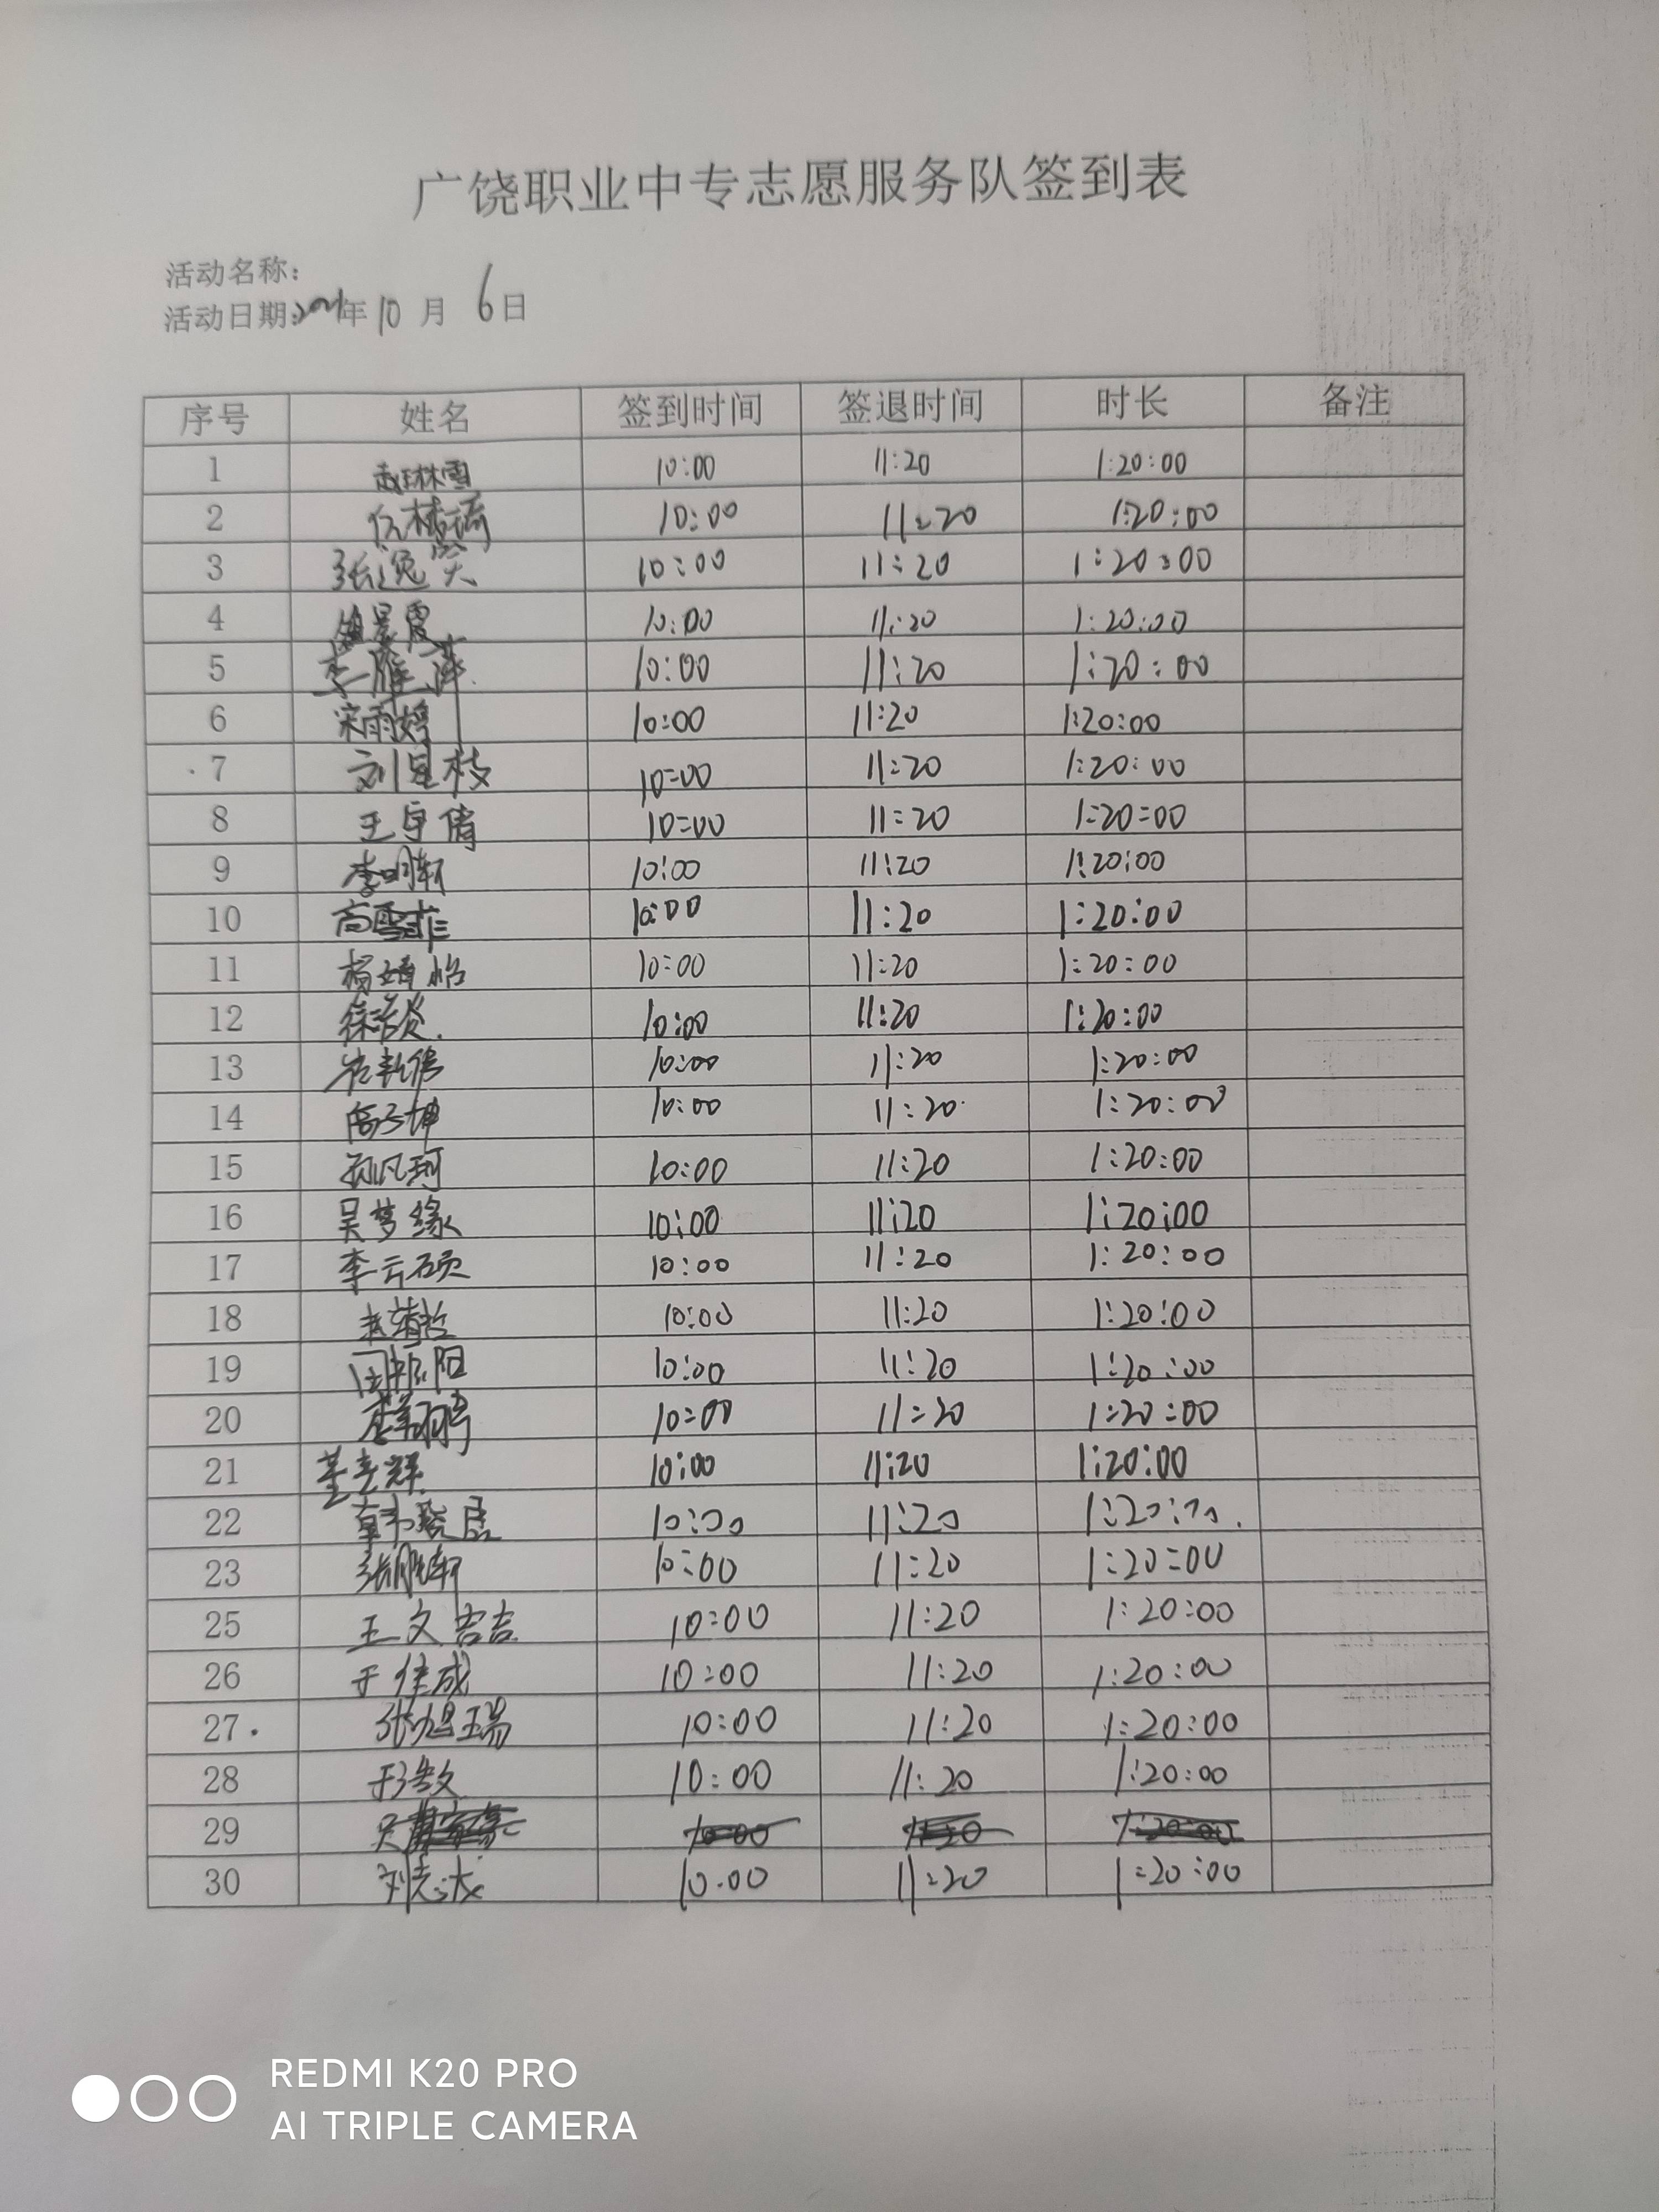 广饶职业中专志愿服务队签到表
活动名称：
活动日期：2021年10月6日
序号 姓名 签到时间 签退时间 时长 备注
1 赵琳雪 10:00 11:20 1:20:00
2 10:00 11:20 1:20:00
3 张逸 10:00 11:20 1:20:00
4 10:00 11:20 1:20:00
5 李雁泽 10:00 11:20 1:20:00
6 宋雨婷 10:00 11:20 1:20:00
7 刘星枝 10:00 11:20 1:20:00
8 王宇倩 10:00 11:20 1:20:00
9 李明轩 10:00 11:20 1:20:00
10 高雪菲 10:00 11:20 1:20:00
11 杨靖怡 10:00 11:20 1:20:00
12 徐浩炎 10:00 11:20 1:20:00
13 10:00 11:20 1:20:00
14 高子坤 10:00 11:20 1:20:00
15 孙凡珂 10:00 11:20 1:20:00
16 吴梦缘 10:00 11:20 1:20:00
17 李云硕 10:00 11:20 1:20:00
18 10:00 11:20 1:20:00
19 10:00 11:20 1:20:00
20 10:00 11:20 1:20:00
21 10:00 11:20 1:20:00
22 10:00 11:20 1:20:00
23 张胜轩 10:00 11:20 1:20:00
25 王文喆 10:00 11:20 1:20:00
26 于佳成 10:00 11:20 1:20:00
27 张旭瑞 10:00 11:20 1:20:00
28 10:00 11:20 1:20:00
29 10:00 11:20 1:20:00
30 刘志 10:00 11:20 1:20:00
REDMI K20 PRO
AI TRIPLE CAMERA